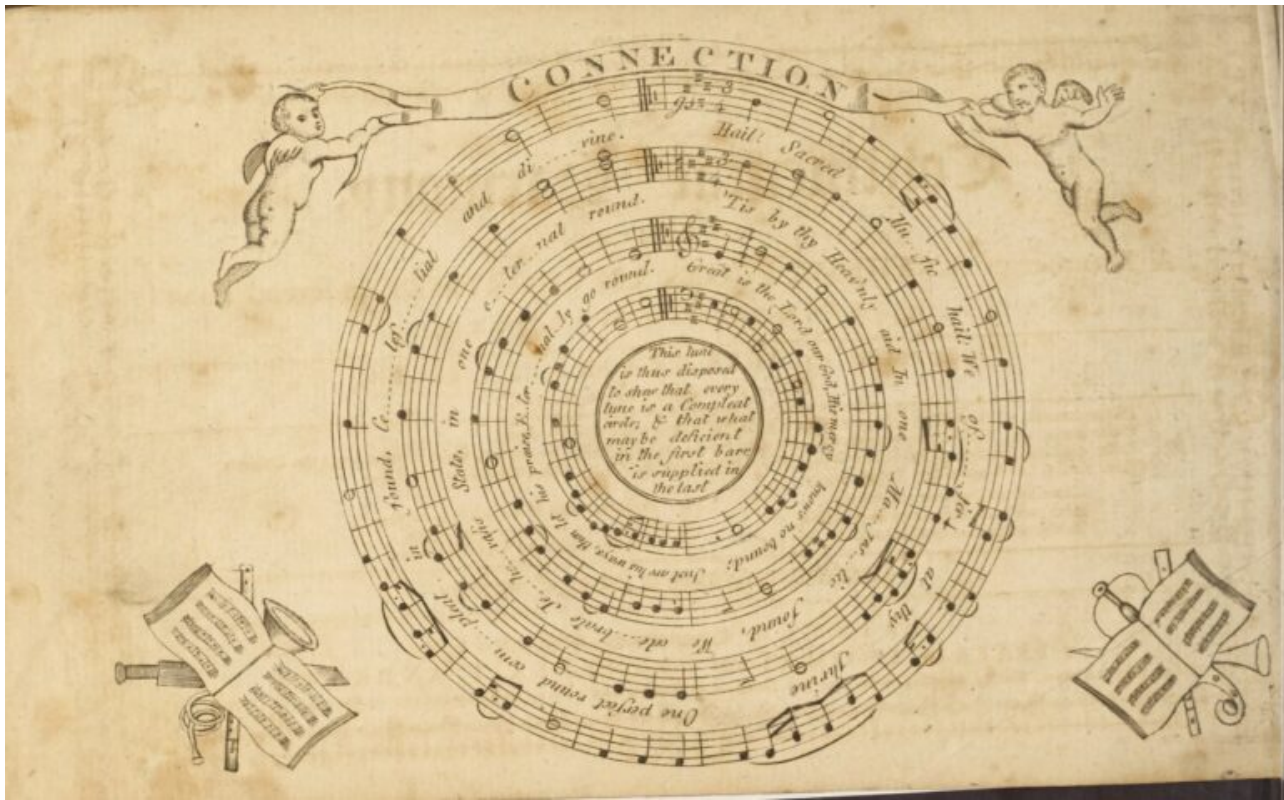 CONNECTION
Hail! Sacred Mu..sic hail: We of......fer at thy Shrine One perfect round in Sound, Ce.......les......tial and di......vine.
'Tis by thy Heav'nly aid In one Ma...jes...tic Sound, We cele...brate State, in one e...ter...nal round.
Great is the Lord our God, His mercy knows no bound; Just are his ways, then let his praise, E..ter....nal..ly go round.
This tune
is thus disposed
to shew that every
tune is a Compleat
circle; & that what
may be deficient
in the first barr
is supplied in
the last